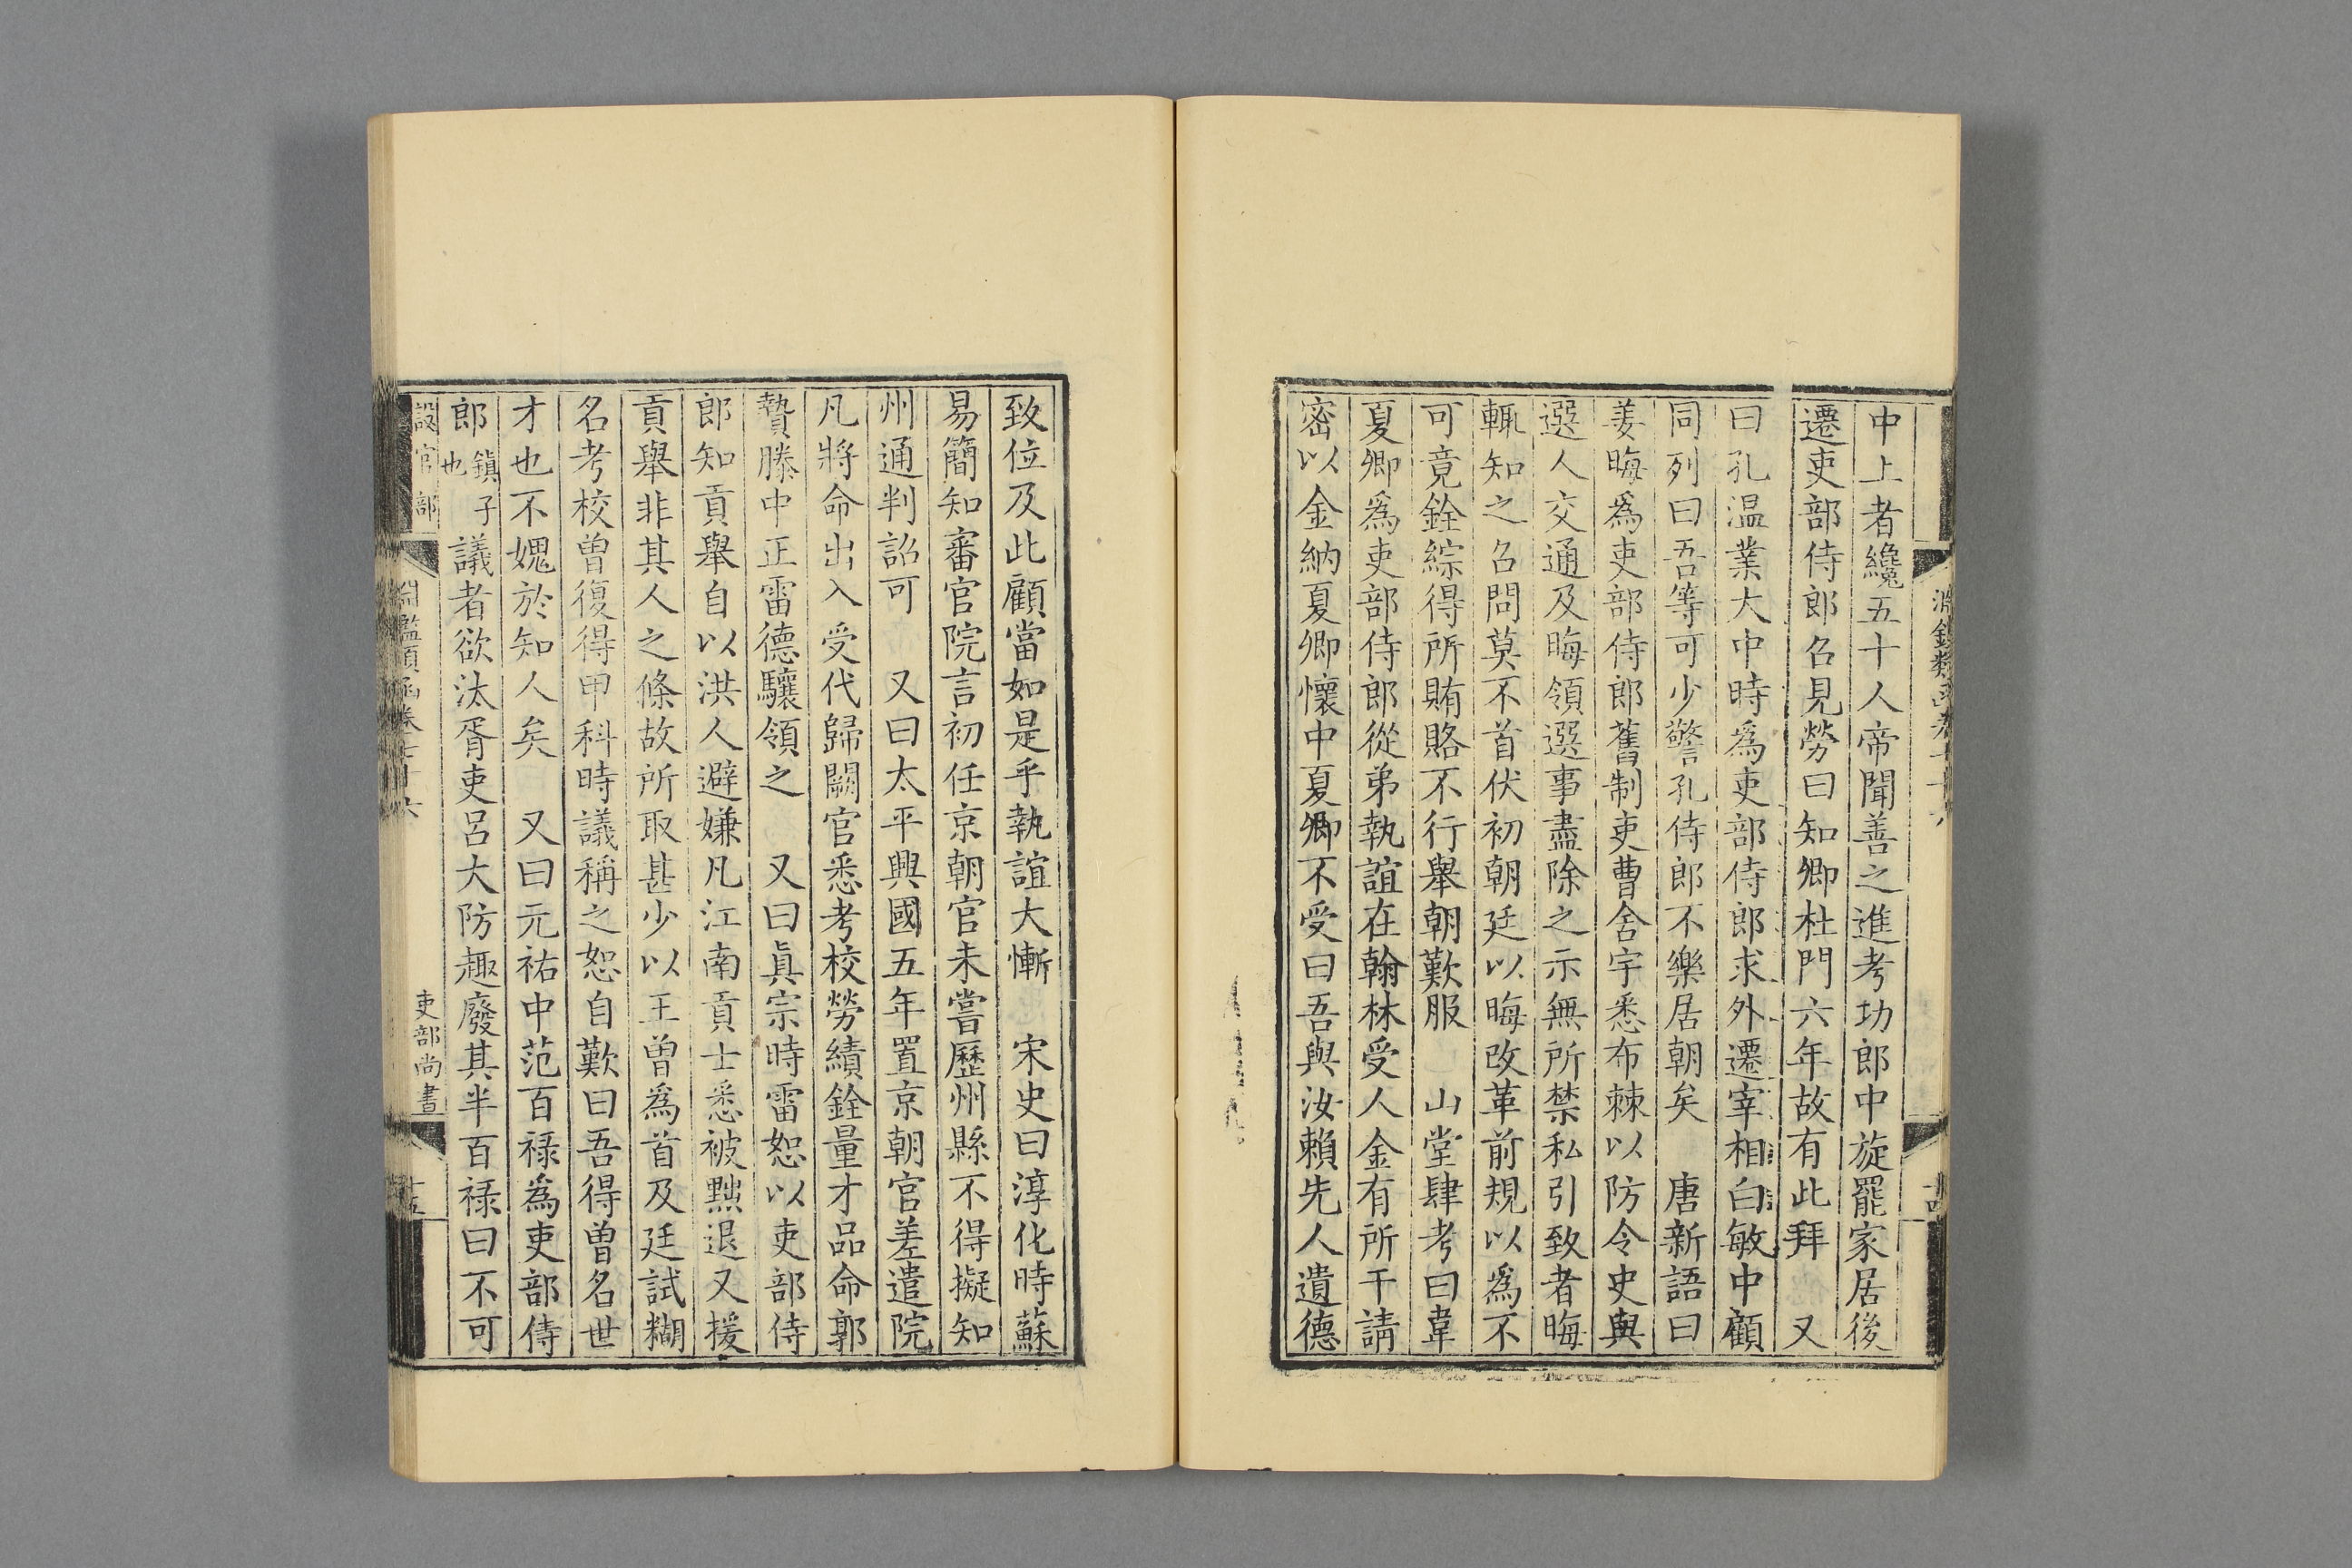 中上者纔五十人帝聞善之進考功郎中旋罷家居後
遷吏部侍郎召見勞曰知卿杜門六年故有此拜　又
曰孔温業大中時爲吏部侍郎求外遷宰相白敏中顧
同列曰吾等可少警孔侍郎不樂居朝矣　唐新語曰
姜晦爲吏部侍郎舊制吏曹舍宇悉布棘以防令史與
選人交通及晦領選事盡除之示無所禁私引致者晦
輒知之召問莫不首伏初朝廷以晦改革前規以爲不
可竟銓綜得所賄賂不行舉朝歎服　山堂肆考曰韋
夏卿爲吏部侍郎從弟執誼在翰林受人金有所干請
密以金納夏卿懷中夏卿不受曰吾與汝賴先人遺德
致位及此顧當如是乎執誼大慚　宋史曰淳化時蘇
易簡知審官院言初任京朝官未嘗歷州縣不得擬知
州通判詔可　又曰太平興國五年置京朝官差遣院
凡將命出入受代歸闕官悉考校勞績銓量才品命郭
贄滕中正雷德驤領之　又曰眞宗時雷恕以吏部侍
郎知貢舉自以洪人避嫌凡江南貢士悉被黜退又援
貢舉非其人之條故所取甚少以王曾爲首及廷試糊
名考校曾復得甲科時議稱之恕自歎曰吾得曾名世
才也不媿於知人矣　又曰元祐中范百祿爲吏部侍
郎鎮子也議者欲汰胥吏呂大防趣廢其半百祿曰不可
設官部
淵鑑類函卷七十六
吏部尚書
十五